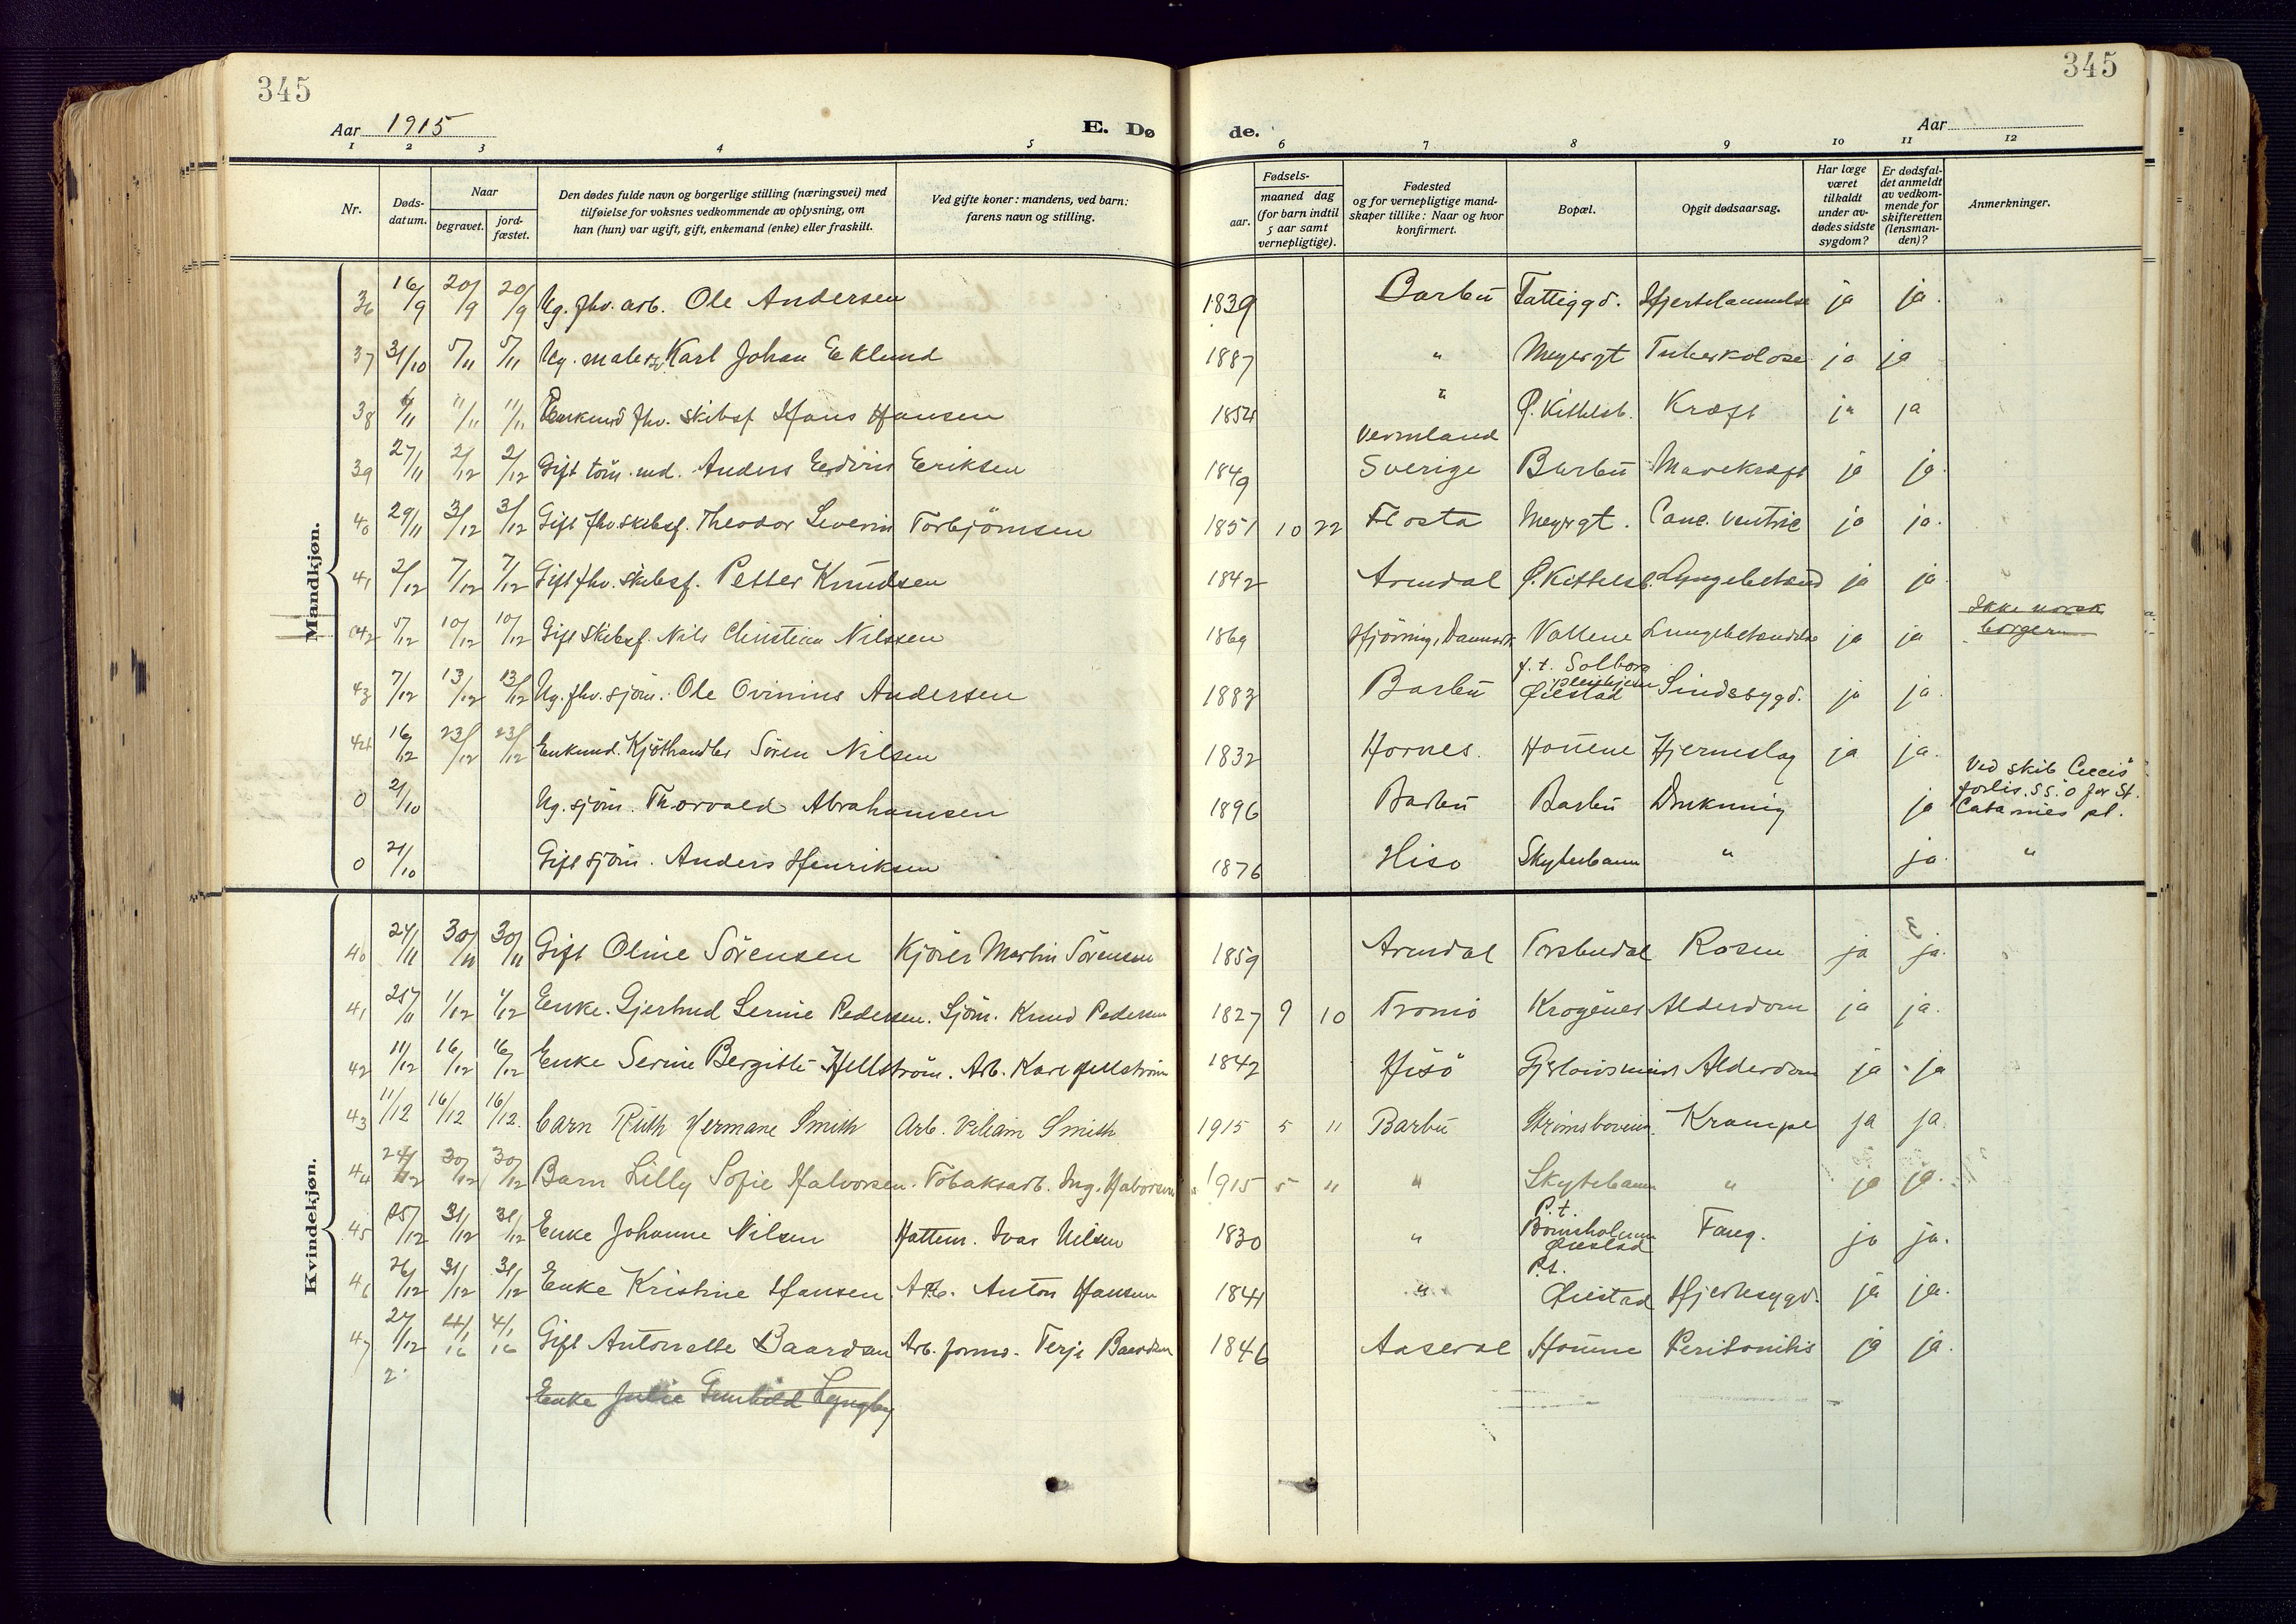 345 345
Aar 1915 E. Dø de. Aar
1 2 3 4 5 6 7 8 9 10 11 12
Nr. Døds-datum. Naar begravet. jord-fæstet. Den dødes fulde navn og borgerlige stilling (næringsvei) med tilføielse for voksnes vedkommende av oplysning, om han (hun) var ugift, gift, enkemand (enke) eller fraskilt. Ved gifte koner: mandens, ved barn: farens navn og stilling. Fødsels- aar. maaned dag (for barn indtil 5 aar samt vernepligtige). Fødested og for vernepligtige mand-skaper tillike: Naar og hvor konfirmert. Bopæl. Opgit dødsaarsag. Har læge været tilkaldt under av-dødes sidste sygdom? Er dødsfal-det anmeldt av vedkom-mende for skifteretten (lensman-den)? Anmerkninger.
Mandkjøn.
36 16/9 20/9 20/9 Ug. fhv. arb. Ole Andersen 1839 Barbu Fattiggd. Hjertelammelse ja ja.
37 31/10 5/11 5/11 Ug. maler Karl Johan Eklund 1887 " Meyergt Tuberkolose ja ja
38 11/11 11/11 Enkemd fhv. skibsf. Hans Hansen 1854 " Ø. Kittelsb. Kræft ja ja
39 27/11 2/12 2/12 Gift töm. md. Anders Eriksen 1849 Vermland Sverige Barbu Mavekræft ja ja.
40 29/11 3/12 3/12 Gift fhv. skibsf. Theodor Severin Torbjörnsen 1851 10 22 Flosta Meyergt. Canc. ventric ja ja.
41 2/12 7/12 7/12 Gift fhv. skibsf. Petter Knudsen 1842 Arendal Ø. Kittelsb. Lungebetænd ja ja.
42 5/12 10/12 10/12 Gift Skibsf. Nils Christian Nilssen 1869 Hjörring, Danmark Vollene Lungebetændelse ja ja Ikke norsk borger
43 7/12 13/12 13/12 Ug. fhv. sjöm. Ole Ovinius Andersen 1883 Barbu p.t. Solborg pleiehjem Øiestad Sindssygd. ja ja.
44 16/12 23/12 23/12 Enkemd. Kjöthandler Sören Nilsen 1832 Hornes. Houene Hjerneslag ja ja.
0 2/10 Ug. sjöm. Thorvald Abrahamsen 1896 Barbu Barbu Drukning ja Ved skib forlis. S.S.O for St. pl.
0 2/10 Gift sjöm. Anders Henriksen 1876 Hisö Skytebanen " ja. "
Kvindekjøn.
40 24/11 30/11 30/11 Gift Oline Sörensen Kjörer Martin Sörensen 1859 Arendal Torsbudal Rosen ja ja.
41 25/11 1/12 1/12 Enke. Gjertrud Serine Pedersen. Sjöm. Knud Pedersen 1827 9 10 Tromö Krogenes Alderdom ja ja.
42 11/12 16/12 16/12 Enke Serine Bergitte Hellström. Arb. Karl Hellström 1842 Hisö Alderdom ja ja
43 11/12 16/12 16/12. barn Ruth Hermane Smith Arb. Viliam Smith 1915 5 11 Barbu Strömsboveien. Krampe ja ja.
44 24/12 30/12 30/12 Barn Lilly Sofie Halvorsen. Tobaksarb. Ing. Halvorsen 1915 5 11 " Skytebanen " ja ja.
45 25/12 31/12 31/12 Enke Johanne Nilsen Hattem. Ivar Nilsen 1830 " P.t. Bornsholmen Øiestad Tæng. ja ja.
46 26/12 31/12 31/12 Enke Kristine Hansen Arb. Anton Hansen 1841 " P.t. Øiestad Hjertesygd. ja ja.
47 27/12 4/1 16 4/1 16 Gift Antonette Baardsen Arb. formd. Terje Baardsen 1846 Aaseral Houene Peritonitis ja ja.
2 Enke Julie Gunhild Lyngby